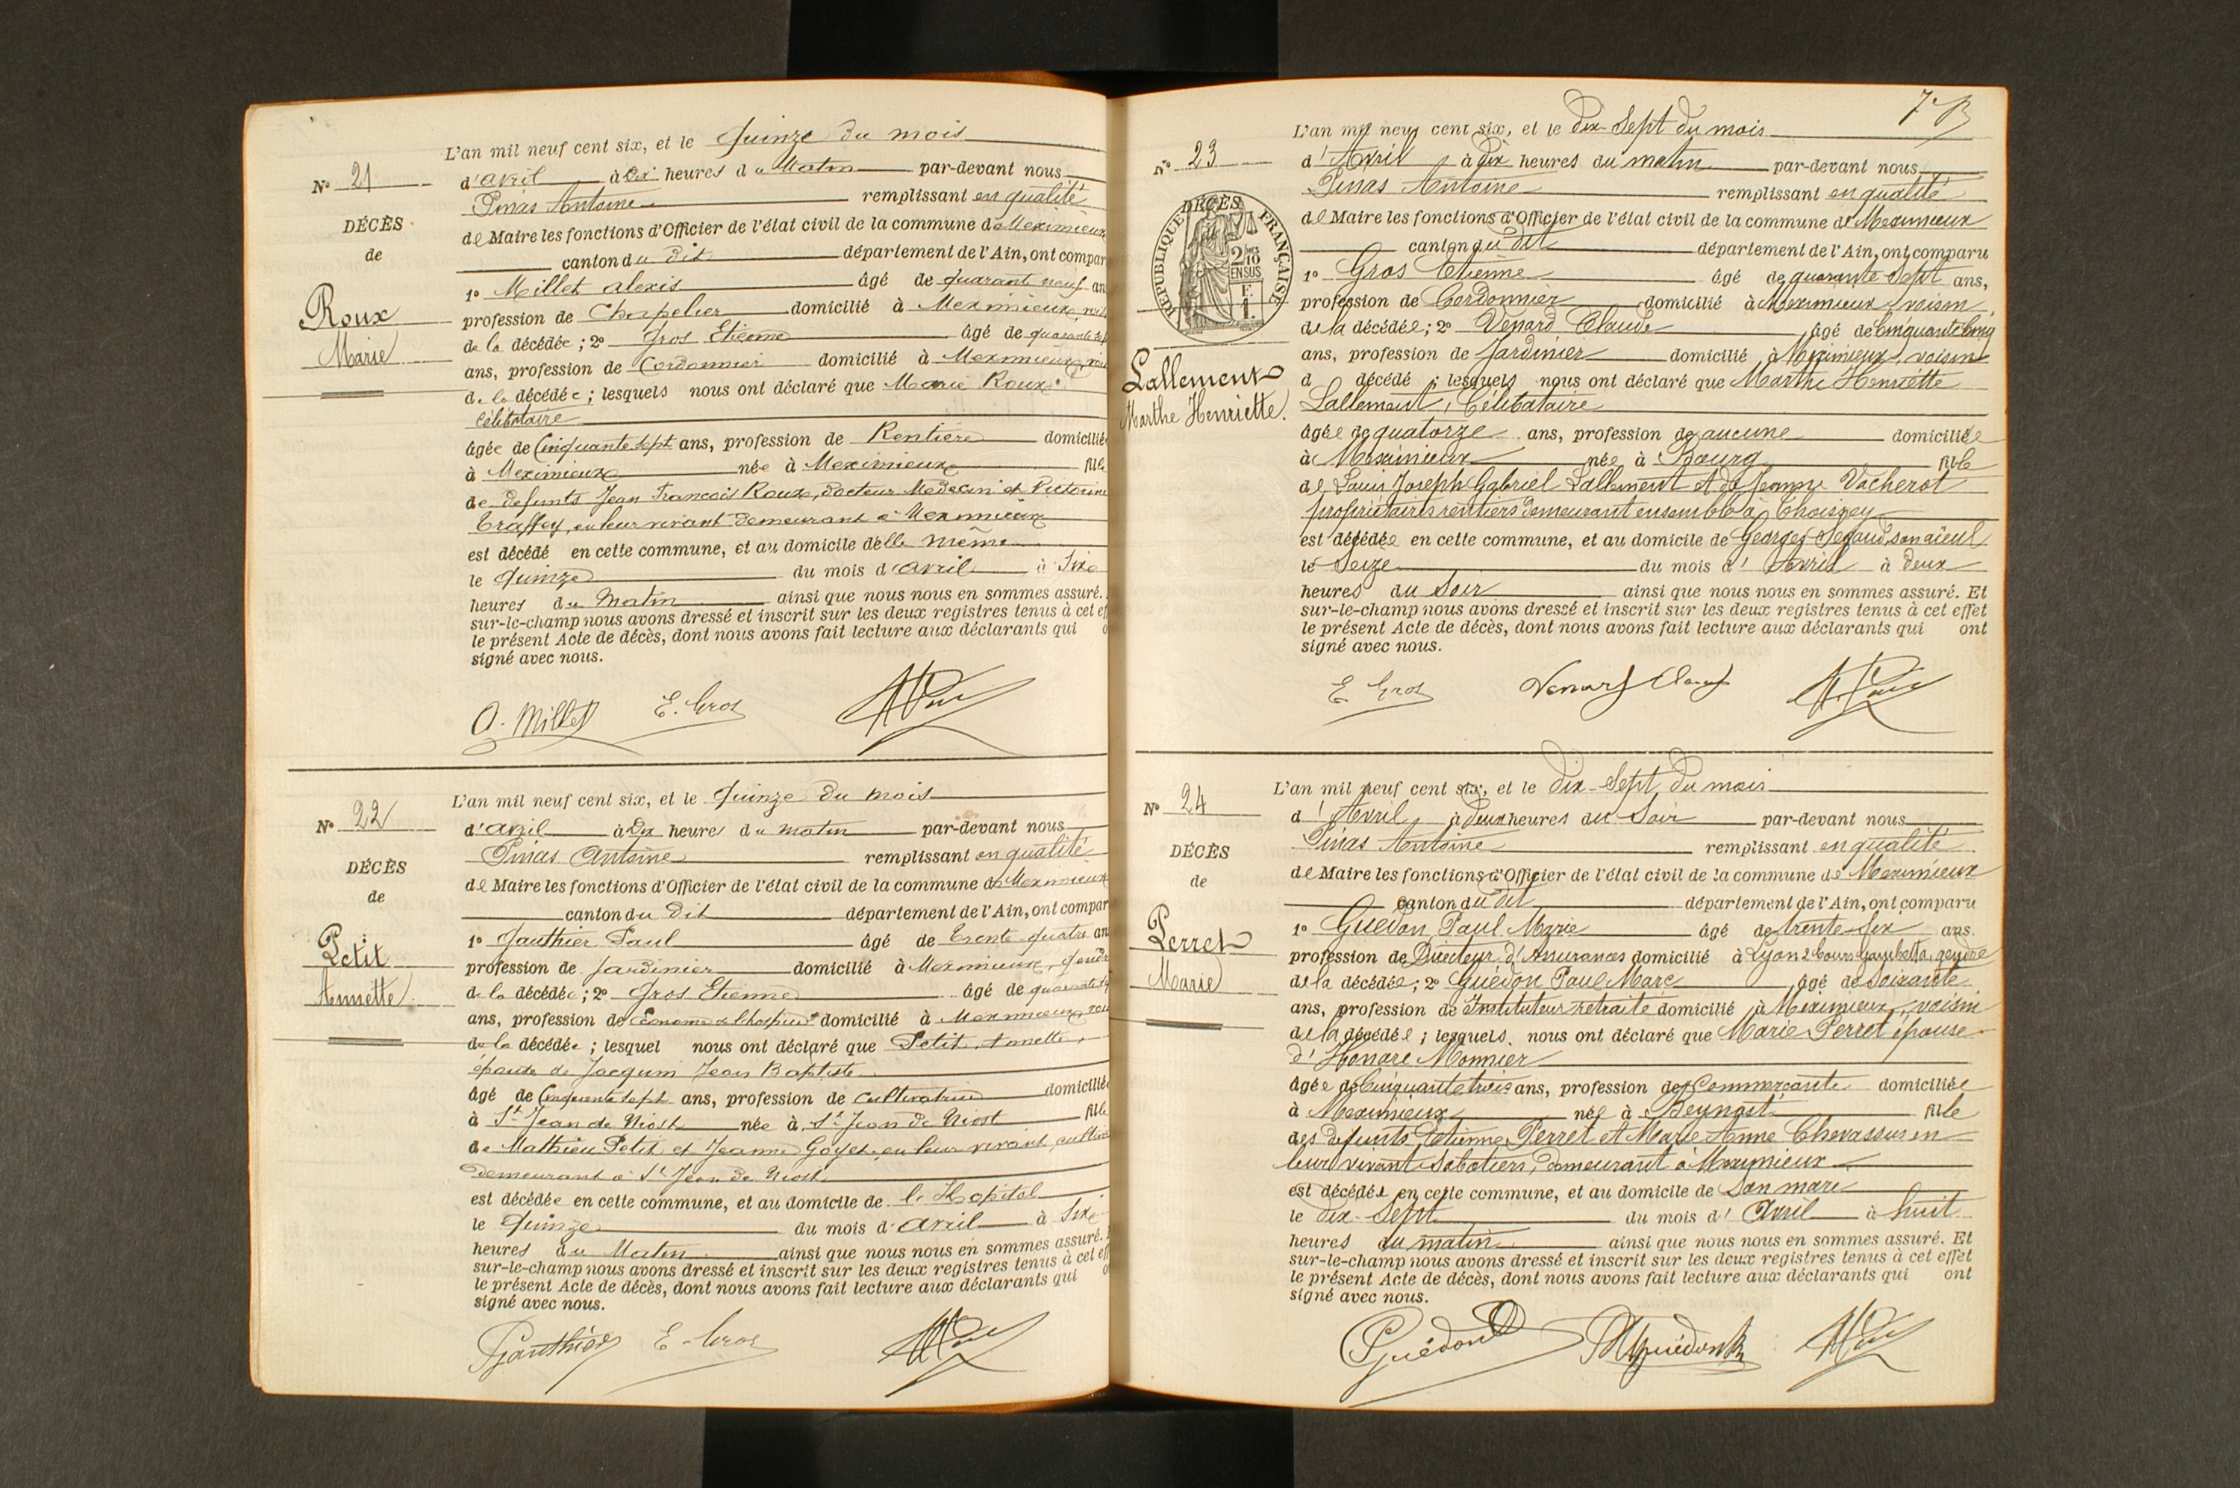 N° 21
DÉCÈS
de
Roux
Marie
L'an mil neuf cent six, et le quinze du mois
d'avril à dix heures du Matin par-devant nous
Pinas Antoine remplissant en qualité
de Maire les fonctions d'Officier de l'état civil de la commune de Meximieux
canton du dit département de l'Ain, ont compar
1° Millet alexis âgé de quarante neuf an
profession de Chapelier domicilié à Meximieux, vois
de la décédée ; 2° Gros Etienne âgé de quarante sept
ans, profession de Cordonnier domicilié à Meximieux, voisin
de la décédée ; lesquels nous ont déclaré que Marie Roux
célibataire
âgée de Cinquante sept ans, profession de Rentière domicilié
à Meximieux née à Meximieux fille
de defunts Jean Francois Roux, docteur Medecin et Victorine
Traffey, en leur vivant demeurant à Meximieux
est décédé en cette commune, et au domicile d'elle même
le quinze du mois d'avril à six
heures du Matin ainsi que nous nous en sommes assuré.
sur-le-champ nous avons dressé et inscrit sur les deux registres tenus à cet ef
le présent Acte de décès, dont nous avons fait lecture aux déclarants qui o
signé avec nous.
A. Millet E. Gros
N° 22
DÉCÈS
de
Petit
Annette
L'an mil neuf cent six, et le quinze du mois
d'avril à dix heures du matin par-devant nous
Pinas Antoine remplissant en qualité
de Maire les fonctions d'Officier de l'état civil de la commune de Meximieux
canton du dit département de l'Ain, ont compar
1° Gauthier Paul âgé de trente quatre an
profession de Jardinier domicilié à Meximieux, gendre
de la décédée ; 2° Gros Etienne âgé de quarante sept
ans, profession de Econome de l'hospice domicilié à Meximieux, vois
de la décédée ; lesquel nous ont déclaré que Petit Annette,
épouse de Jacquin Jean Baptiste
âgé de Cinquante sept ans, profession de cultivatrice domiciliée
à St Jean de Niost née à St Jean de Niost fille
de Mathieu Petit et Jeanne Goyet, en leur vivant, cultiva
demeurant à St Jean de Niost
est décédée en cette commune, et au domicile de l'Hopital
le quinze du mois d'avril à six
heures du Matin ainsi que nous nous en sommes assuré.
sur-le-champ nous avons dressé et inscrit sur les deux registres tenus à cet eff
le présent Acte de décès, dont nous avons fait lecture aux déclarants qui o
signé avec nous.
P Gauthier E. Gros
7e
N° 23
RÉPUBLIQUE FRANÇAISE
DÉCÈS
2/10 EN SUS
F. 1.
Lallement
Marthe Henriette.
L'an mil neuf cent six, et le dix-sept du mois
d'Avril à dix heures du matin par-devant nous
Pinas Antoine remplissant en qualité
de Maire les fonctions d'Officier de l'état civil de la commune de Meximieux
canton du dit département de l'Ain, ont comparu
1° Gros Etienne âgé de quarante sept ans,
profession de Cordonnier domicilié à Meximieux, voisin
de la décédée ; 2° Venard Claude âgé de Cinquante cinq
ans, profession de Jardinier domicilié à Meximieux, voisin
d décédé ; lesquels nous ont déclaré que Marthe Henriette
Lallement, Célibataire
âgée de quatorze ans, profession de aucune domiciliée
à Meximieux née à Bourg fille
de Louis Joseph Gabriel Lallement et de Jenny Vacherot
propriétaires rentiers demeurant ensemble à Choisey
est décédée en cette commune, et au domicile de Georges Segaud, son aïeul
le Seize du mois d'Avril à deux
heures du Soir ainsi que nous nous en sommes assuré. Et
sur-le-champ nous avons dressé et inscrit sur les deux registres tenus à cet effet
le présent Acte de décès, dont nous avons fait lecture aux déclarants qui ont
signé avec nous.
E Gros Venard Claude
N° 24
DÉCÈS
de
Perret
Marie
L'an mil neuf cent six, et le dix-sept du mois
d'Avril à deux heures du Soir par-devant nous
Pinas Antoine remplissant en qualité
de Maire les fonctions d'Officier de l'état civil de la commune de Meximieux
canton du dit département de l'Ain, ont comparu
1° Guédon Paul Marie âgé de trente-six ans
profession de Directeur d'Assurances domicilié à Lyon 2 Cours Gambetta, gendre
de la décédée ; 2° Guédon Paul Marc âgé de soixante
ans, profession de Instituteur retraité domicilié à Meximieux, voisin
de la décédée ; lesquels nous ont déclaré que Marie Perret épouse
d'Honoré Monnier
âgée de Cinquante trois ans, profession de Commerçante domiciliée
à Meximieux née à Beynost fille
des defunts Etienne Perret et Marie Anne Chevassus en
leur vivant Sabotiers, demeurant à Meximieux
est décédée en cette commune, et au domicile de Son mari
le dix-sept du mois d'Avril à huit
heures du matin ainsi que nous nous en sommes assuré. Et
sur-le-champ nous avons dressé et inscrit sur les deux registres tenus à cet effet
le présent Acte de décès, dont nous avons fait lecture aux déclarants qui ont
signé avec nous.
P Guédon PM Guédon